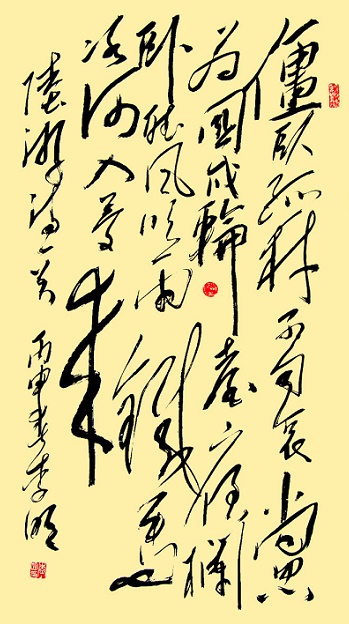 僵臥孤村不自哀尚思
為國戍輪臺夜闌
臥聽風吹雨鐵馬
冰河入夢來
陸游詩一首 丙申春李明